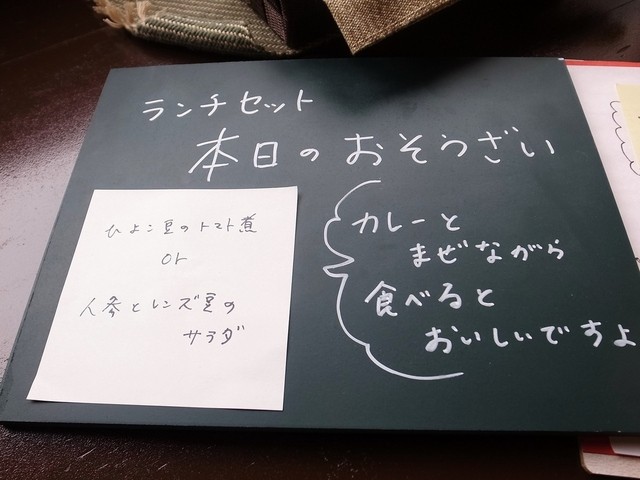 ランチセット
本日のおそうざい
ひよこ豆のトマト煮
or
人参とレンズ豆の
サラダ
カレーと
まぜながら
食べると
おいしいですよ